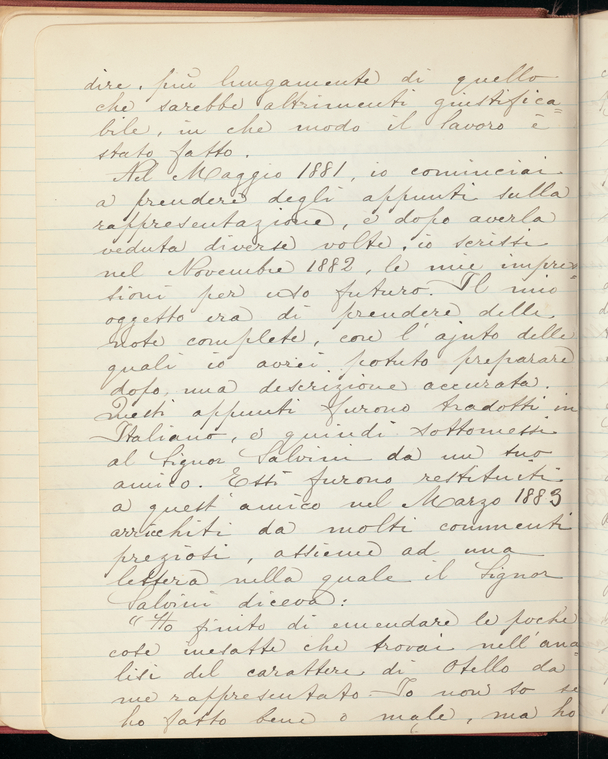 dire, più lungamente di quello
che sarebbe altrimenti giustifica=
bile, in che modo il lavoro è
stato fatto.
Nel Maggio 1881, io cominciai
a prendere degli appunti sulla
rappresentazione, e dopo averla
veduta diverse volte, io scrissi
nel Novembre 1882, le mie impres=
sioni per uso futuro. Il mio
oggetto era di prendere delle
note complete, con l'ajuto delle
quali io avrei potuto preparare
dopo, una descrizione accurata.
Questi appunti furono tradotti in
Italiano, e quindi sottomessi
al Signor Salvini da un suo
amico. Essi furono restituiti
a quest'amico nel Marzo 1883
arricchiti da molti commenti
preziosi, assieme ad una
lettera nella quale il Signor
Salvini diceva:
"Ho finito di emendare le poche
cose inesatte che trovai nell'ana=
lisi del carattere di Otello da
me rappresentato - Io non so se
ho fatto bene o male, ma ho